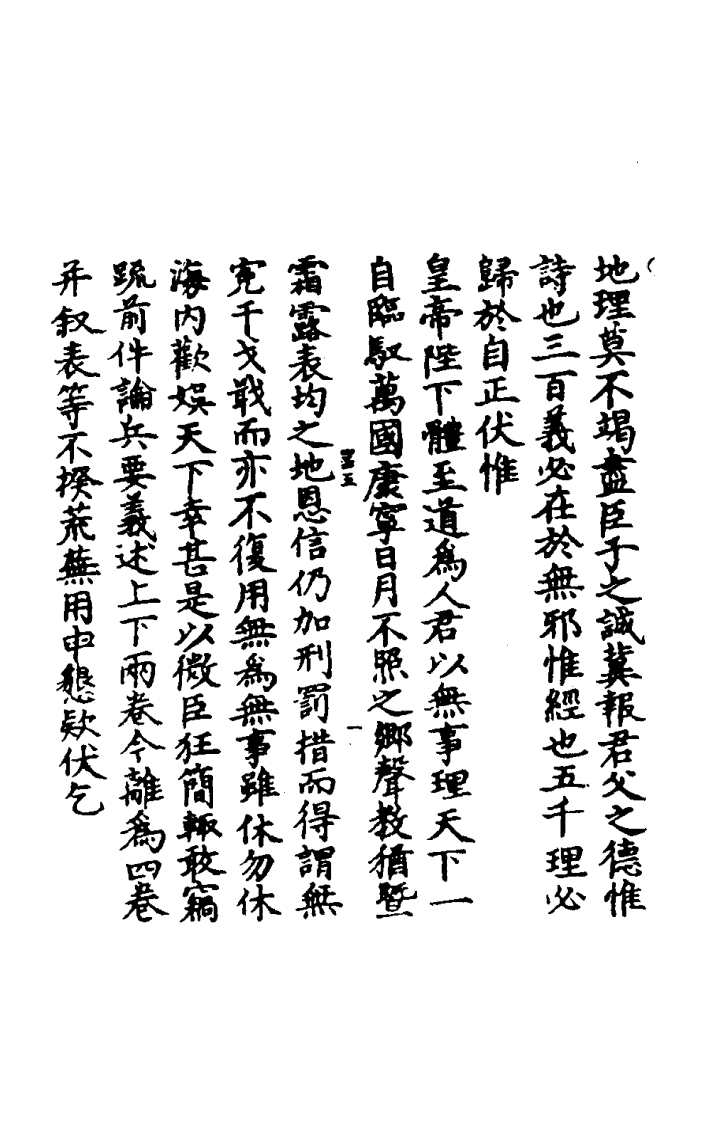 地理莫不竭盡臣子之誠冀報君父之德惟
詩也三百義必在於無邪惟經也五千理必
歸於自正伏惟
皇帝陛下體至道為人君以無事理天下一
自臨馭萬國康寧日月不照之鄉聲教猶暨
霜露表均之地恩信仍加刑罰措而得謂無
冤干戈戢而亦不復用無為無事雖休勿休
海内歡娛天下幸甚是以微臣狂簡輒敢竊
䟽前件論兵要義述上下兩卷今離為四卷
并叙表等不揆荒蕪用申懇欵伏乞